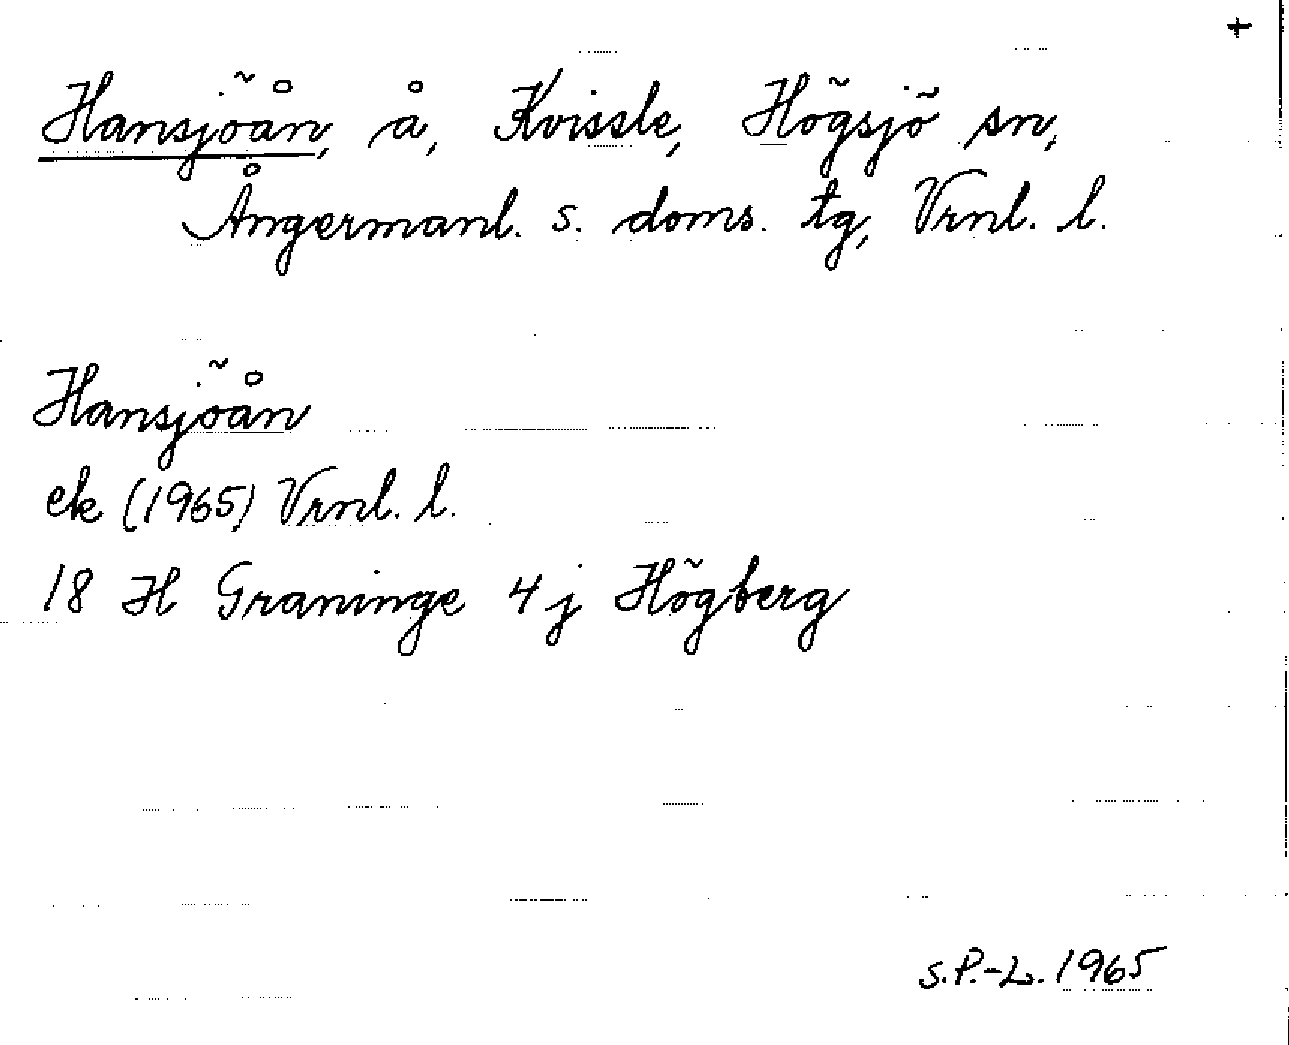 +
Hansjöån, å, Kvissle, Högsjö sn,
Ångermanl. s. doms. tg, Vrnl. l.
Hansjöån
ek (1965) Vrnl. l.
18 H Graninge 4 j Högberg
S.P.-L. 1965